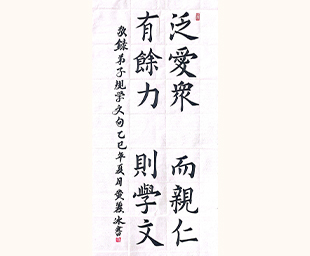 泛愛衆　而親仁
有餘力　則學文
敬錄弟子規學文句乙巳年夏月黃麗冰書